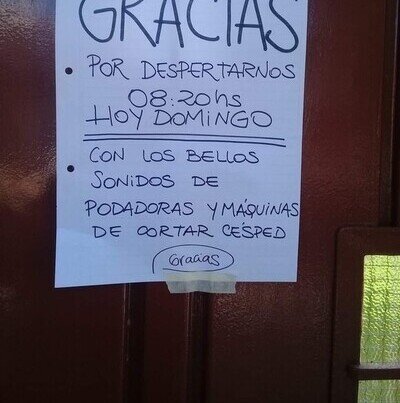 GRACIAS
• POR DESPERTARNOS
08:20hs
HOY DOMINGO
• CON LOS BELLOS
SONIDOS DE
PODADORAS Y MÁQUINAS
DE CORTAR CÉSPED
Gracias